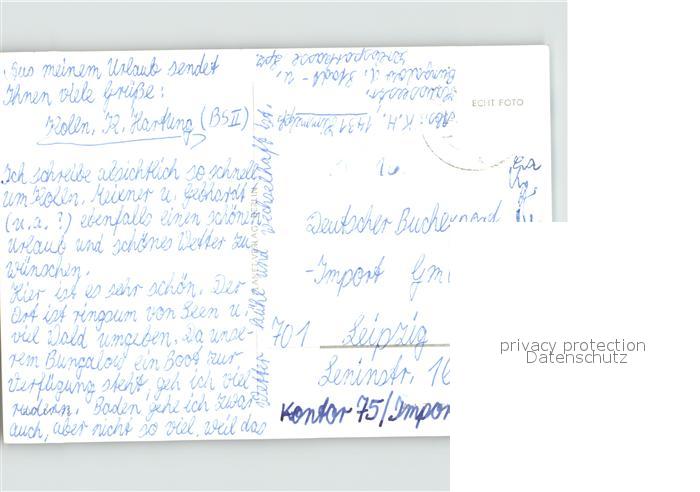 Aus meinem Urlaub sendet
Ihnen viele Grüße:
Kolln. K. Hartung (BS II)
Ich schreibe absichtlich so schnell
um Kolln. Meixner u. Gebhardt
(u.a.?) ebenfalls einen schönen
Urlaub und schönes Wetter zu
wünschen.
Hier ist es sehr schön. Der
Ort ist ringsum von Seen u.
viel Wald umgeben. Da unse-
rem Bungalow ein Boot zur
Verfügung steht, geh ich viel
rudern. Baden gehe ich zwar
auch, aber nicht so viel, weil das
Wetter kühl und wechselhaft ist.
Abs.: K.H., 1431
Bungalow d. Stadt- u.
ECHT FOTO
Deutscher Buchexport
-Import Gm
701 Leipzig
Leninstr. 16
Kontor 75/Impor
privacy protection
Datenschutz